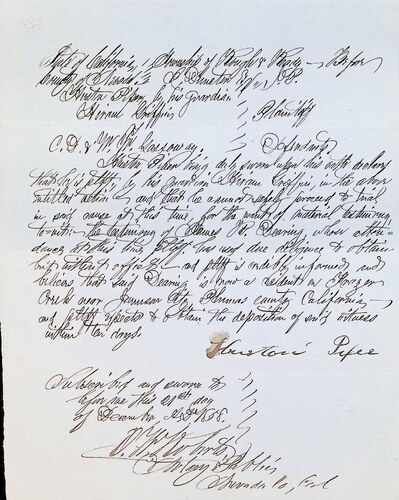 State of California, Township of Rough & Ready Before
County of Nevada Esqr, J.P.
Huston by his guardian
Hiram Plaintiff
C. D. & Wm. Defendants
Huston being duly sworn upon his oath declares
that he is pltff. by his guardian Hiram in the above
entitled action and that he cannot safely proceed to trial
in said cause at this time, for the want of material testimony
to-wit: the testimony of James W. Dearing, whose atten-
dance at this time pltff. has used due diligence to obtain
but without effect and pltff is credibly informed and
believes that said Dearing is now a resident on
Creek near City Plumas county California
and pltff expects to obtain the deposition of said witness
within ten days.
Huston
Subscribed and sworn to
before me this day
of December A.D. 1858.
Notary Public
Nevada Co, Cal